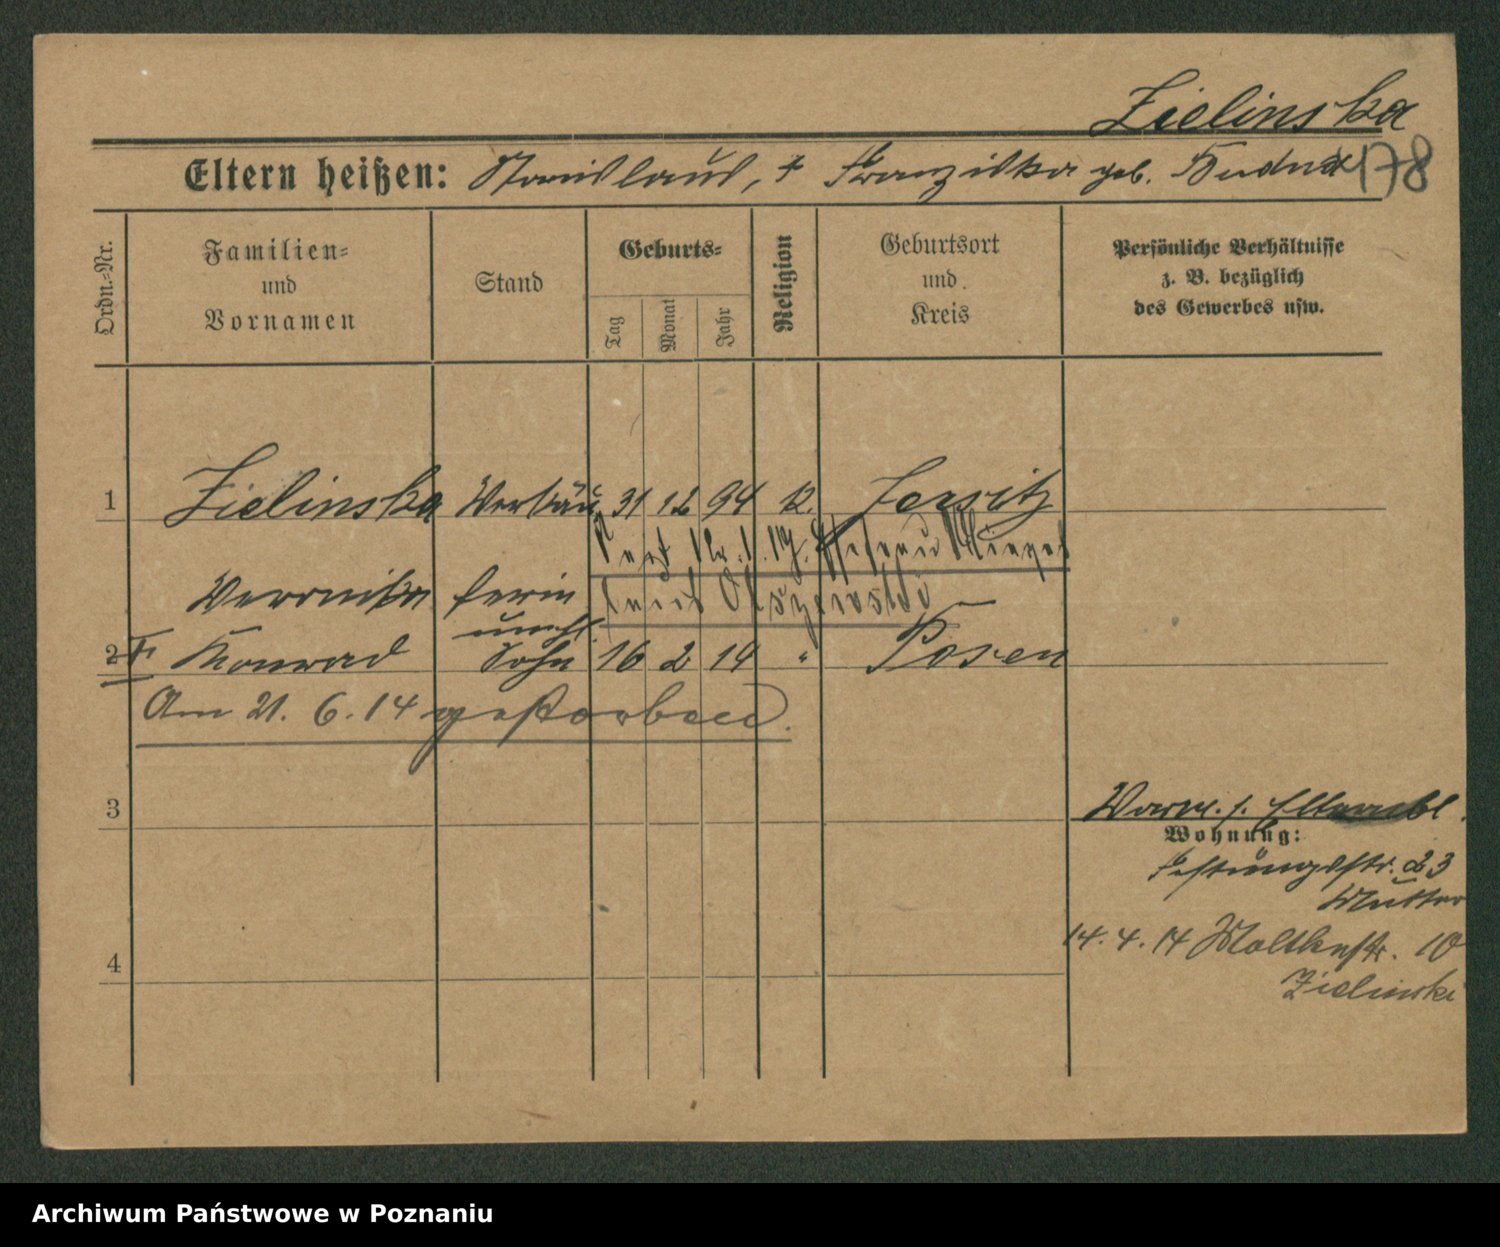 Zielinska
Eltern heißen: Stanislaus, † Franziska geb.
178
Ordn.-Nr.
Familien-
und
Vornamen
Stand
Geburts-
Tag
Monat
Jahr
Religion
Geburtsort
und
Kreis
Persönliche Verhältnisse
z. B. bezüglich
des Gewerbes usw.
1 Zielinska Verkäu 31 12 94 K. Jersitz
Veronika ferin
unehl
2 † Konrad Sohn 16 2 14 " Posen
Am 21. 6. 14 gestorben.
3
Wohnung:
Festungsstr. 23
Mutter
4
14. 4. 14 Moltkestr. 10
Zielinski
Archiwum Państwowe w Poznaniu